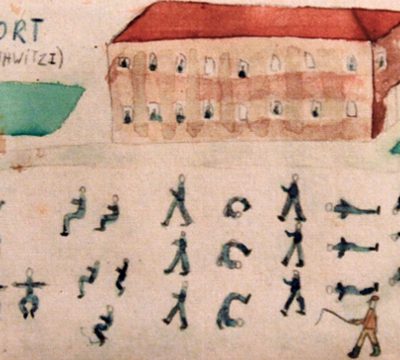 ORT
HWITZI)